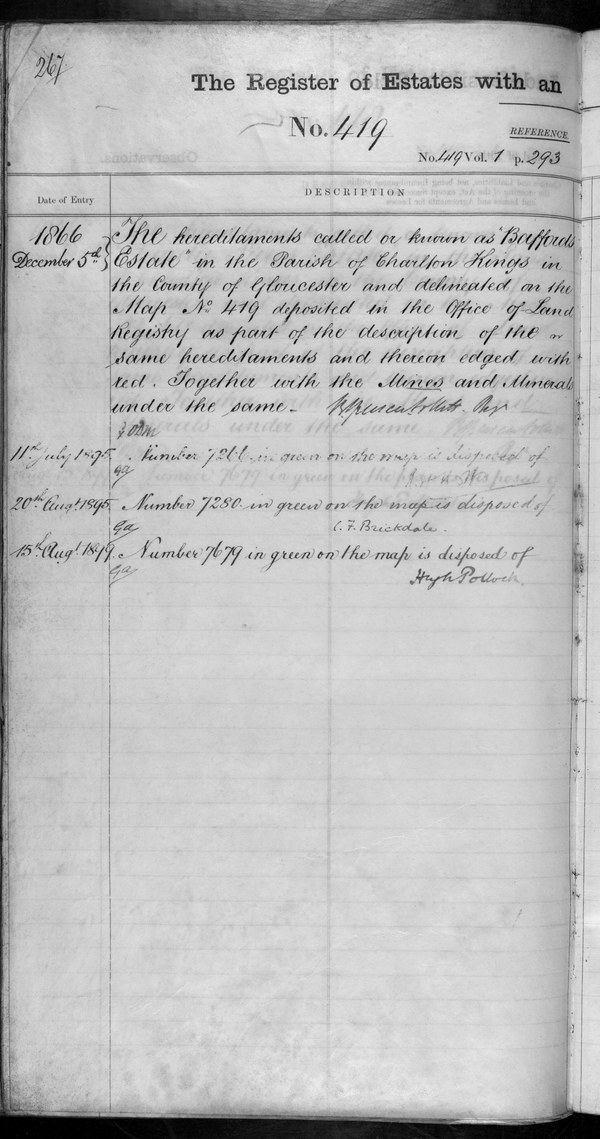 267
The Register of Estates with an
No. 419
REFERENCE.
No. 419 Vol. 1 p. 293
Date of Entry
DESCRIPTION
1866
December 5th
The hereditaments called or known as "Baffords
Estate" in the Parish of Charlton Kings in
the County of Gloucester and delineated on the
Map No 419 deposited in the Office of Land
Registry as part of the description of the
same hereditaments and thereon edged with
red. Together with the Mines and Minerals
under the same.
11th July 1895. Number in green on the map is disposed of
20th Augt. 1895. Number 7280 in green on the map is disposed of
C. F. Brickdale.
15th Augt 1899. Number 7679 in green on the map is disposed of
Hugh Pollock.